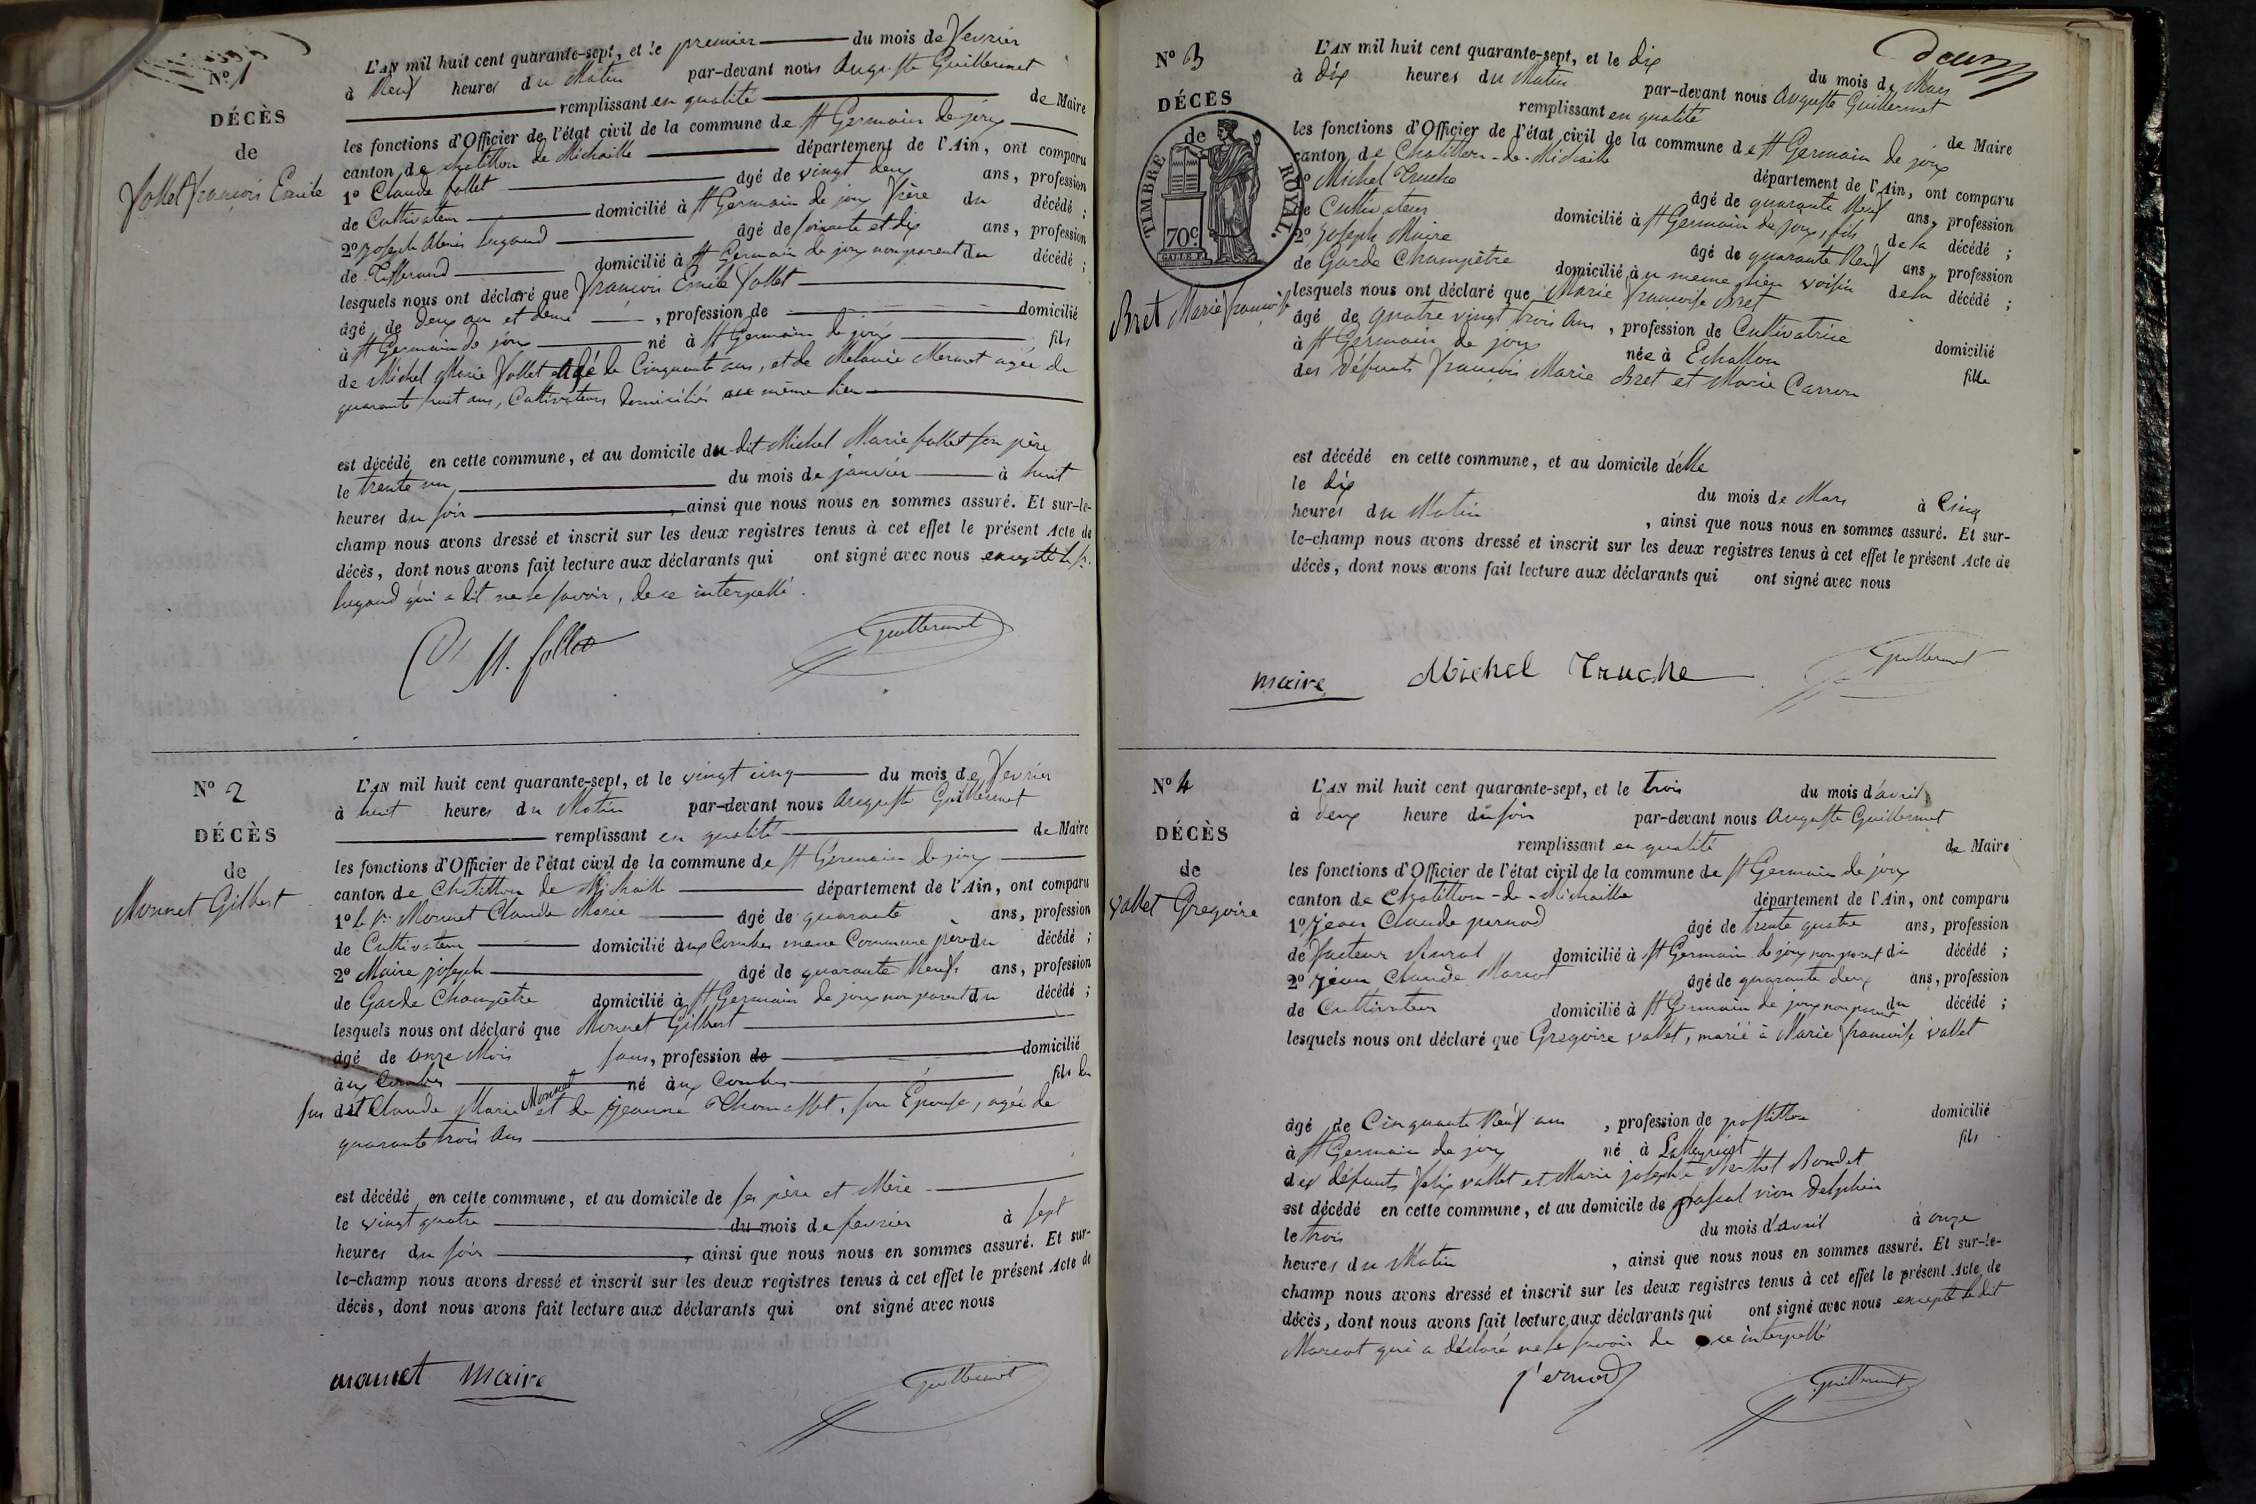 No 1
DÉCÈS
de
follet françois Emile
L'AN mil huit cent quarante-sept, et le premier du mois de fevrier
à Neuf heures du Matin par-devant nous Auguste Guillermet
remplissant en qualité de Maire
les fonctions d'Officier de l'état civil de la commune de St Germain de joux
canton de chatillon de Michaille département de l'Ain, ont comparu
1o Claude follet âgé de vingt deux ans, profession
de Cultivateur domicilié à St Germain de joux frère du décédé ;
2o joseph Alexis Lugand âgé de soixante et dix ans, profession
de Tisserand domicilié à St Germain de joux non parent du décédé ;
lesquels nous ont déclaré que françois Emile follet
âgé de deux an et demi , profession de domicilié
à St Germain de joux né à St Germain de joux fils
de Michel Marie follet agé de Cinquante ans, et de Melanie Mermet agée de
quarante huit ans, Cultivateurs domiciliés au même lieu
est décédé en cette commune, et au domicile du dit Michel Marie follet son père
le trente un du mois de janvier à huit
heures du soir , ainsi que nous nous en sommes assuré. Et sur-le-
champ nous avons dressé et inscrit sur les deux registres tenus à cet effet le présent Acte de
décès, dont nous avons fait lecture aux déclarants qui ont signé avec nous excepté le sr.
Lugand qui a dit ne le savoir, de ce interpellé.
follet
Guillermet
No 2
DÉCÈS
de
Monnet Gilbert
L'AN mil huit cent quarante-sept, et le vingt cinq du mois de fevrier
à huit heures du Matin par-devant nous Auguste Guillermet
remplissant en qualité de Maire
les fonctions d'Officier de l'état civil de la commune de St Germain de joux
canton de Chatillon de Michaille département de l'Ain, ont comparu
1o le sr Monnet Claude Marie âgé de quarante ans, profession
de Cultivateur domicilié aux Combes meme Commune père du décédé ;
2o Maire joseph âgé de quarante Neuf ans, profession
de Garde Champêtre domicilié à St Germain de joux non parent du décédé ;
lesquels nous ont déclaré que Monnet Gilbert
âgé de onze Mois sans, profession de domicilié
aux Combes né aux Combes fils du
sus dit Claude Marie Monnet et de jeanne Thomasset, son Epouse, agée de
quarante trois ans
est décédé en cette commune, et au domicile de ses père et Mère
le vingt quatre du mois de fevrier à sept
heures du soir , ainsi que nous nous en sommes assuré. Et sur-
le-champ nous avons dressé et inscrit sur les deux registres tenus à cet effet le présent Acte de
décès, dont nous avons fait lecture aux déclarants qui ont signé avec nous
monnet maire
Guillermet
deux
No 3
DÉCÈS
de
TIMBRE ROYAL.
70c
Bret Marie françoise
L'AN mil huit cent quarante-sept, et le dix du mois de Mars
à dix heures du Matin par-devant nous Auguste Guillermet
remplissant en qualité de Maire
les fonctions d'Officier de l'état civil de la commune de St Germain de joux
canton de Chatillon-de-Michaille département de l'Ain, ont comparu
1o Michel Truche âgé de quarante Neuf ans, profession
de Cultivateur domicilié à St Germain de joux, fils de la décédé ;
2o joseph Maire âgé de quarante Neuf ans, profession
de Garde Champêtre domicilié au meme lieu voisin de la décédé ;
lesquels nous ont déclaré que Marie françoise Bret
âgé de quatre vingt trois ans , profession de Cultivatrice domicilié
à St Germain de joux née à Echallon fille
des défunts françois Marie Bret et Marie Carron
est décédé en cette commune, et au domicile d'elle
le dix du mois de Mars à Cinq
heures du Matin , ainsi que nous nous en sommes assuré. Et sur-
le-champ nous avons dressé et inscrit sur les deux registres tenus à cet effet le présent Acte de
décès, dont nous avons fait lecture aux déclarants qui ont signé avec nous
maire Michel Truche
Guillermet
No 4
DÉCÈS
de
vallet Gregoire
L'AN mil huit cent quarante-sept, et le trois du mois d'avril
à deux heure du soir par-devant nous Auguste Guillermet
remplissant en qualité de Maire
les fonctions d'Officier de l'état civil de la commune de St Germain de joux
canton de Chatillon-de-Michaille département de l'Ain, ont comparu
1o jean Claude pernod âgé de trente quatre ans, profession
de facteur Rural domicilié à St Germain de joux non parent du décédé ;
2o jean Claude Marcot âgé de quarante deux ans, profession
de Cultivateur domicilié à St Germain de joux non parent du décédé ;
lesquels nous ont déclaré que Gregoire vallet, marié à Marie françoise vallet
âgé de Cinquante Neuf ans , profession de postillon domicilié
à St Germain de joux né à Lalleyriat fils
des défunts felix vallet et Marie josephte Berthet Bondet
est décédé en cette commune, et au domicile de pascal vion Delphin
le trois du mois d'avril à onze
heures du Matin , ainsi que nous nous en sommes assuré. Et sur-le-
champ nous avons dressé et inscrit sur les deux registres tenus à cet effet le présent Acte de
décès, dont nous avons fait lecture aux déclarants qui ont signé avec nous excepté le dit
Marcot qui a déclaré ne le savoir de ce interpellé
pernod
Guillermet